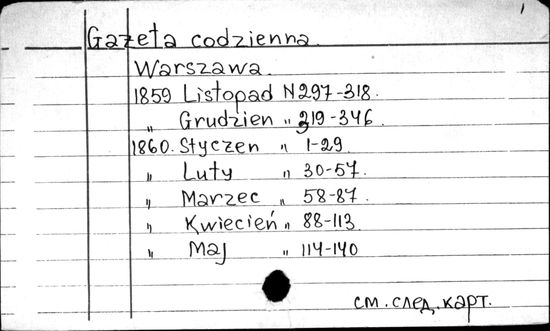 1
Gazeta codzienna.
Warszawa.
1859 Listopad N 297-318.
" Grudzien " 319-346
1860. Styczen " 1-29.
" Luty " 30-57.
" Marzec " 58-87.
" Kwiecień " 88-113
" Maj " 114-140
см. след. карт.